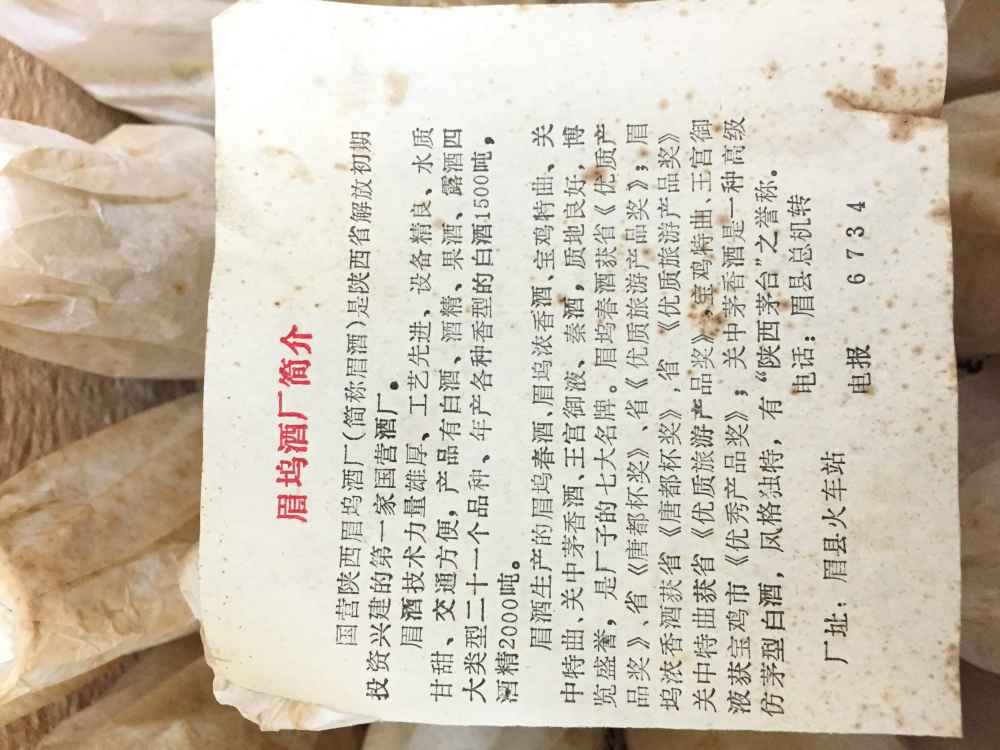 眉坞酒厂简介
国营陕西眉坞酒厂(简称眉酒)是陕西省解放初期
投资兴建的第一家国营酒厂。
眉酒技术力量雄厚、工艺先进、设备精良、水质
甘甜、交通方便,产品有白酒、酒精、果酒、露酒四
大类型二十一个品种、年产各种香型的白酒1500吨,
酒精2000吨。
眉酒生产的眉坞春酒、眉坞浓香酒、宝鸡特曲、关
中特曲、关中茅香酒、王宫御液、秦酒,质地良好,博
览盛誉,是厂子的七大名牌。眉坞春酒获省《优质产
品奖》、省《唐都杯奖》、省《优质旅游产品奖》;眉
坞浓香酒获省《唐都杯奖》,省《优质旅游产品奖》
关中特曲获省《优质旅游产品奖》;宝鸡特曲、王宫御
液获宝鸡市《优秀产品奖》;关中茅香酒是一种高级
仿茅型白酒,风格独特,有“陕西茅台”之誉称。
厂址:眉县火车站 电话:眉县总机转
电报 6734